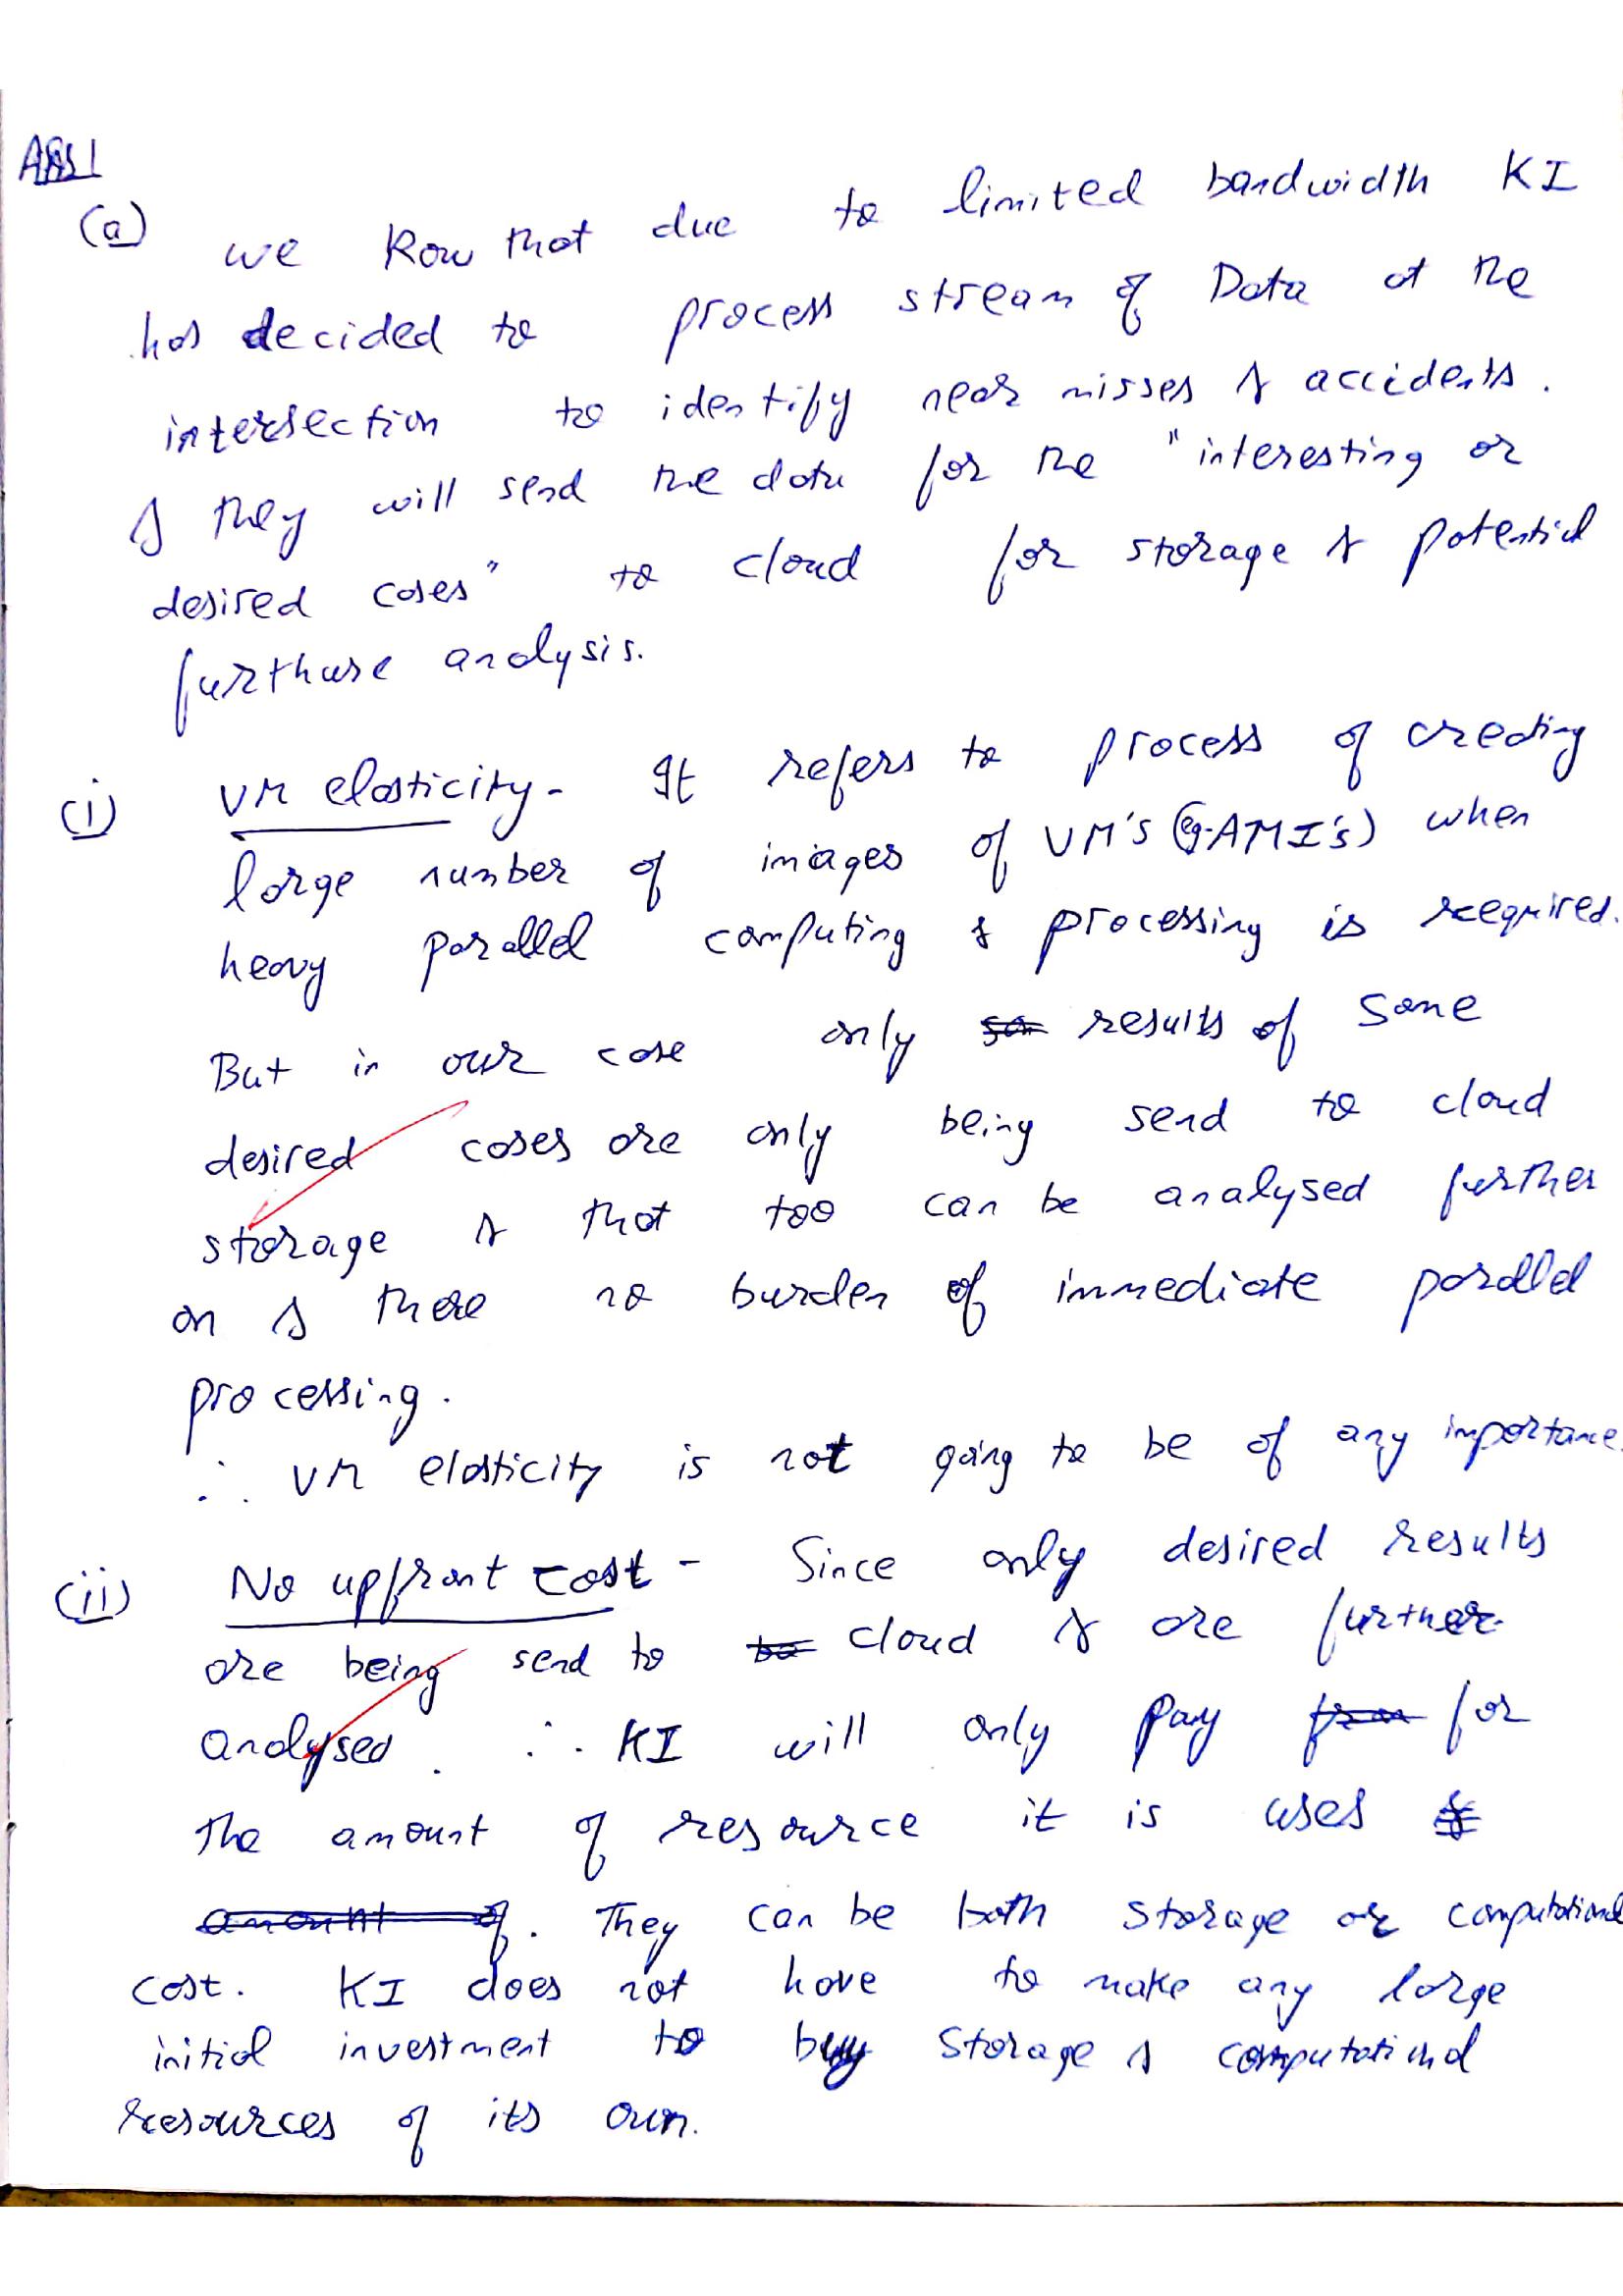 Ans 1
(a) we kow that due to limited bandwidth KI
has decided to process stream of Data at the
intersection to identify near misses & accidents.
& they will send the data for the "interesting or
desired cases" to cloud for storage & potential
furthure analysis.
(i) VM elasticity - It refers to process of creating
large number of images of VM's (eg-AMI's) when
heavy parallel computing & processing is reequired.
But in our case only results of some
desired cases are only being send to cloud
storage & that too can be analysed further
on & there no burden of immediate parallel
processing.
∴ VM elasticity is not going to be of any importance.
(ii) No upfront cost - Since only desired results
are being send to cloud & are further
analysed. ∴ KI will only pay for
the amount of resource it is uses
. They can be both storage or computational
cost. KI does not have to make any large
initial investment to buy storage & computational
resources of its own.